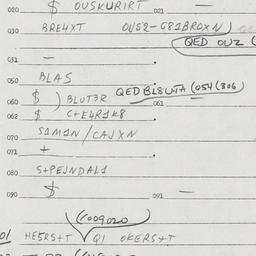 020 $ OUSKURIRT 021 —
030 BRE4XT OUS2-G81BROXN)
QED OUZ (
031 —
050 BLAS
QEDBL8LUTA (054(806)
060 $ ) BLUT3R 061
062 $ C+E4R1K8
070 S1M1N / CAJXN
071 +
080 S+PEJNDAL1
090 $ 091 —
(009020
01 HE5RS+T Q1 OKERS+T